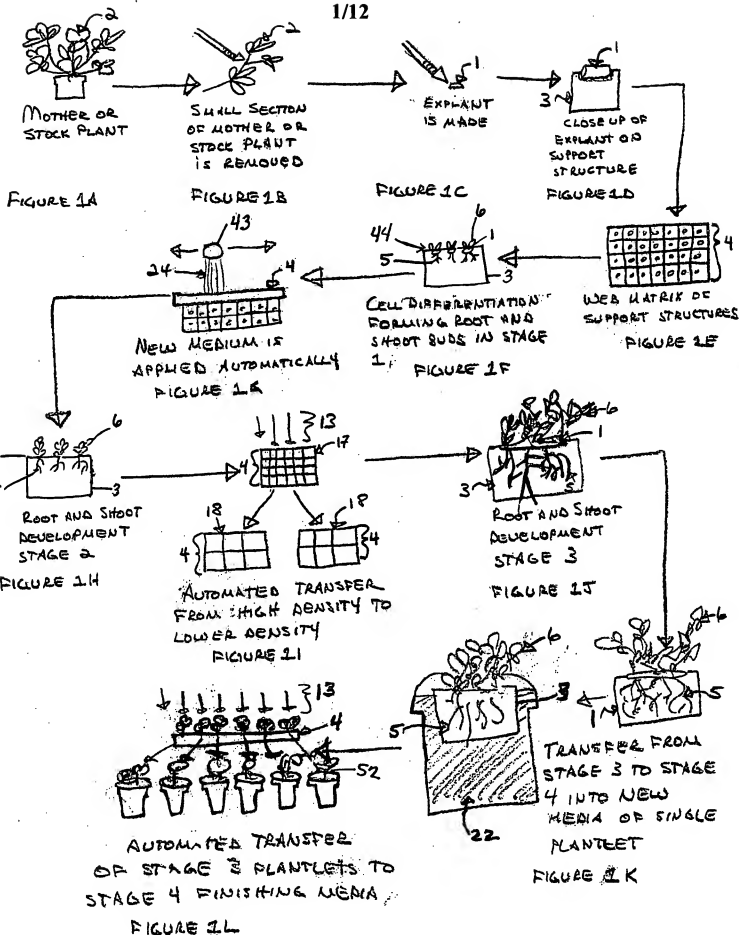 1/12
2
MOTHER OR
STOCK PLANT
FIGURE 1A
2
SMALL SECTION
OF MOTHER OR
STOCK PLANT
IS REMOVED
FIGURE 1B
1
EXPLANT
IS MADE
FIGURE 1C
1
3
CLOSE UP OF
EXPLANT ON
SUPPORT
STRUCTURE
FIGURE 1D
4
WEB MATRIX OF
SUPPORT STRUCTURES
FIGURE 1E
6
44
1
5
3
CELL DIFFERENTIATION
FORMING ROOT AND
SHOOT BUDS IN STAGE
1,
FIGURE 1F
43
24
4
NEW MEDIUM IS
APPLIED AUTOMATICALLY
FIGURE 1G
6
3
ROOT AND SHOOT
DEVELOPMENT
STAGE 2
FIGURE 1H
13
17
4
18
18
4
4
AUTOMATED TRANSFER
FROM HIGH DENSITY TO
LOWER DENSITY
FIGURE 1I
6
1
3
5
ROOT AND SHOOT
DEVELOPMENT
STAGE 3
FIGURE 1J
6
5
1
6
3
5
22
TRANSFER FROM
STAGE 3 TO STAGE
4 INTO NEW
MEDIA OF SINGLE
PLANTLET
FIGURE 1K
13
4
52
AUTOMATED TRANSFER
OF STAGE 3 PLANTLETS TO
STAGE 4 FINISHING MEDIA
FIGURE 1L